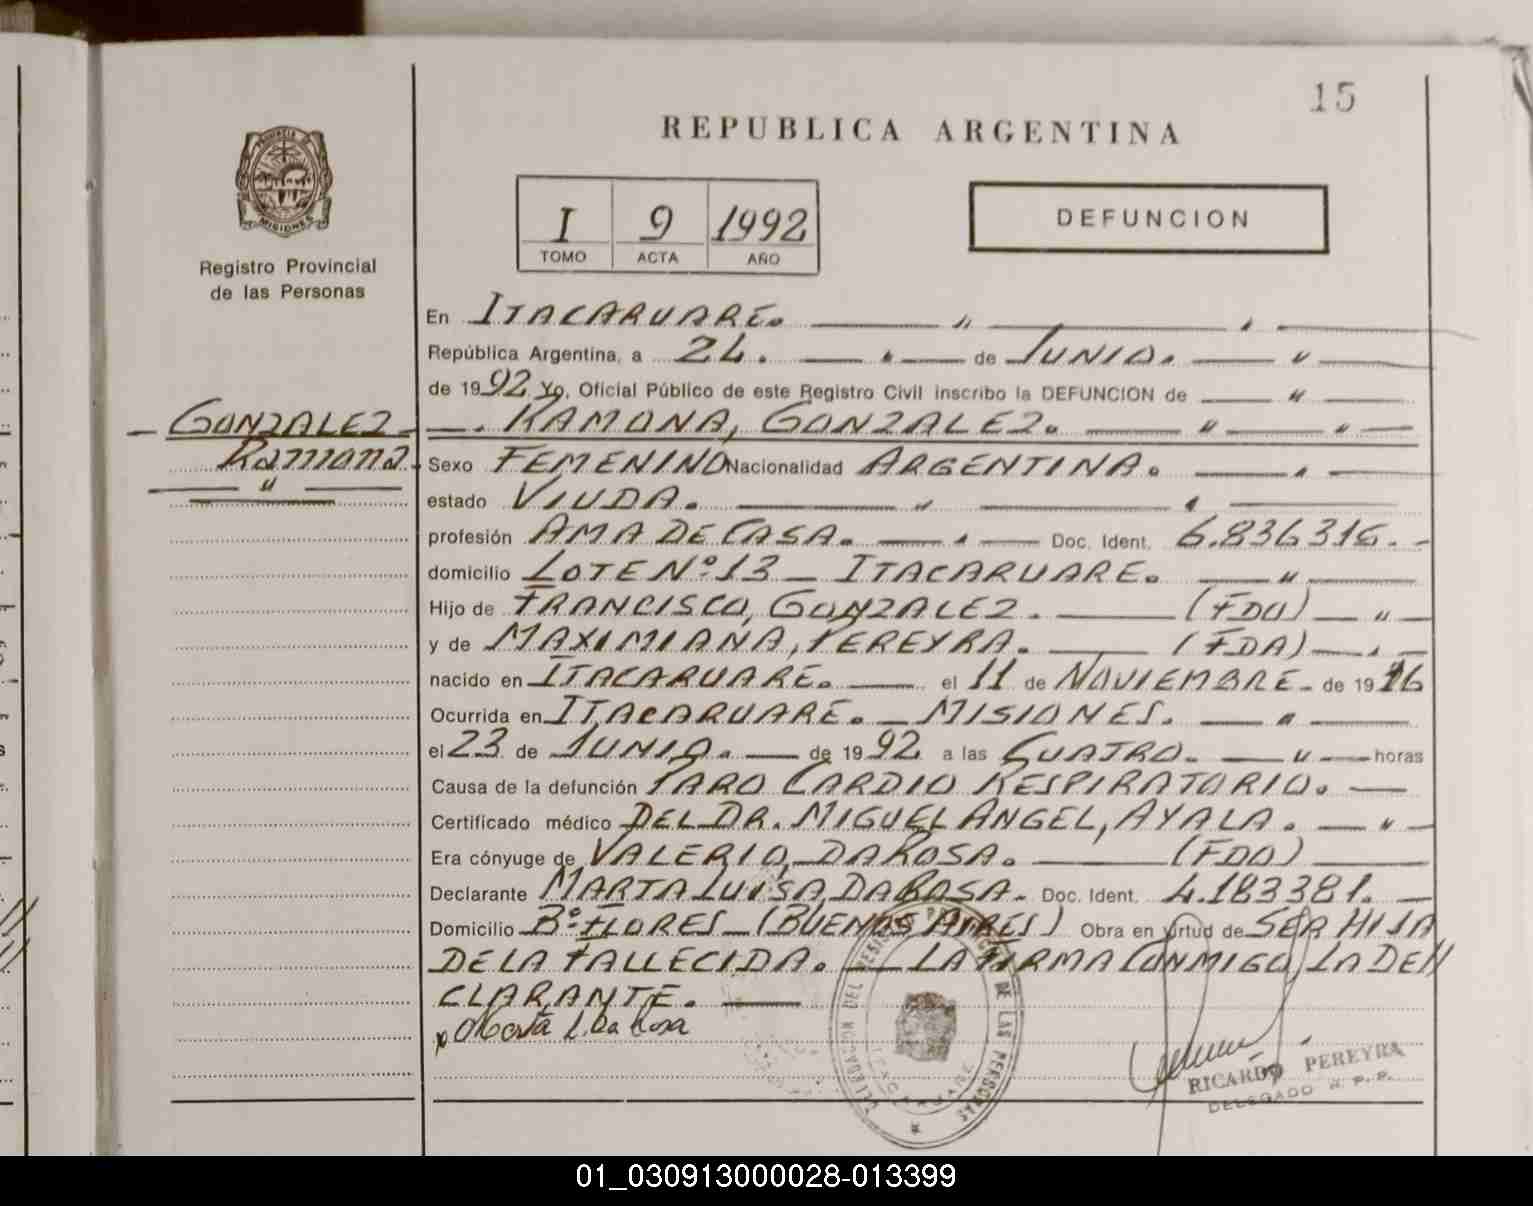 15
REPUBLICA ARGENTINA
PROVINCIA DE MISIONES
I 9 1992
TOMO ACTA AÑO
DEFUNCION
Registro Provincial
de las Personas
GONZALEZ
Ramona
En ITACARUARE.
República Argentina, a 24. de JUNIO.
de 1992 Yo, Oficial Público de este Registro Civil inscribo la DEFUNCION de
RAMONA, GONZALEZ.
Sexo FEMENINO Nacionalidad ARGENTINA.
estado VIUDA.
profesión AMA DE CASA. Doc. Ident. 6.836316.
domicilio LOTE Nº 13 - ITACARUARE.
Hijo de FRANCISCO, GONZALEZ. (FDO)
y de MAXIMIANA, PEREYRA. (FDA)
nacido en ITACARUARE. el 11 de NOVIEMBRE - de 1916
Ocurrida en ITACARUARE. - MISIONES.
el 23 de JUNIO. de 1992 a las CUATRO. horas
Causa de la defunción PARO CARDIO RESPIRATORIO.
Certificado médico DEL DR. MIGUEL ANGEL, AYALA.
Era cónyuge de VALERIO, DA ROSA. (FDO)
Declarante MARTA LUISA, DA ROSA. Doc. Ident. 4.183381.
Domicilio Bº FLORES - (BUENOS AIRES) Obra en virtud de SER HIJA
DE LA FALLECIDA. - LA FIRMA CONMIGO, LA DE//
CLARANTE.
x Marta L. Da Rosa
DELEGACION DEL REGISTRO PROVINCIAL DE LAS PERSONAS
ITACARUARE
RICARDO PEREYRA
DELEGADO R. P. P.
01_030913000028-013399